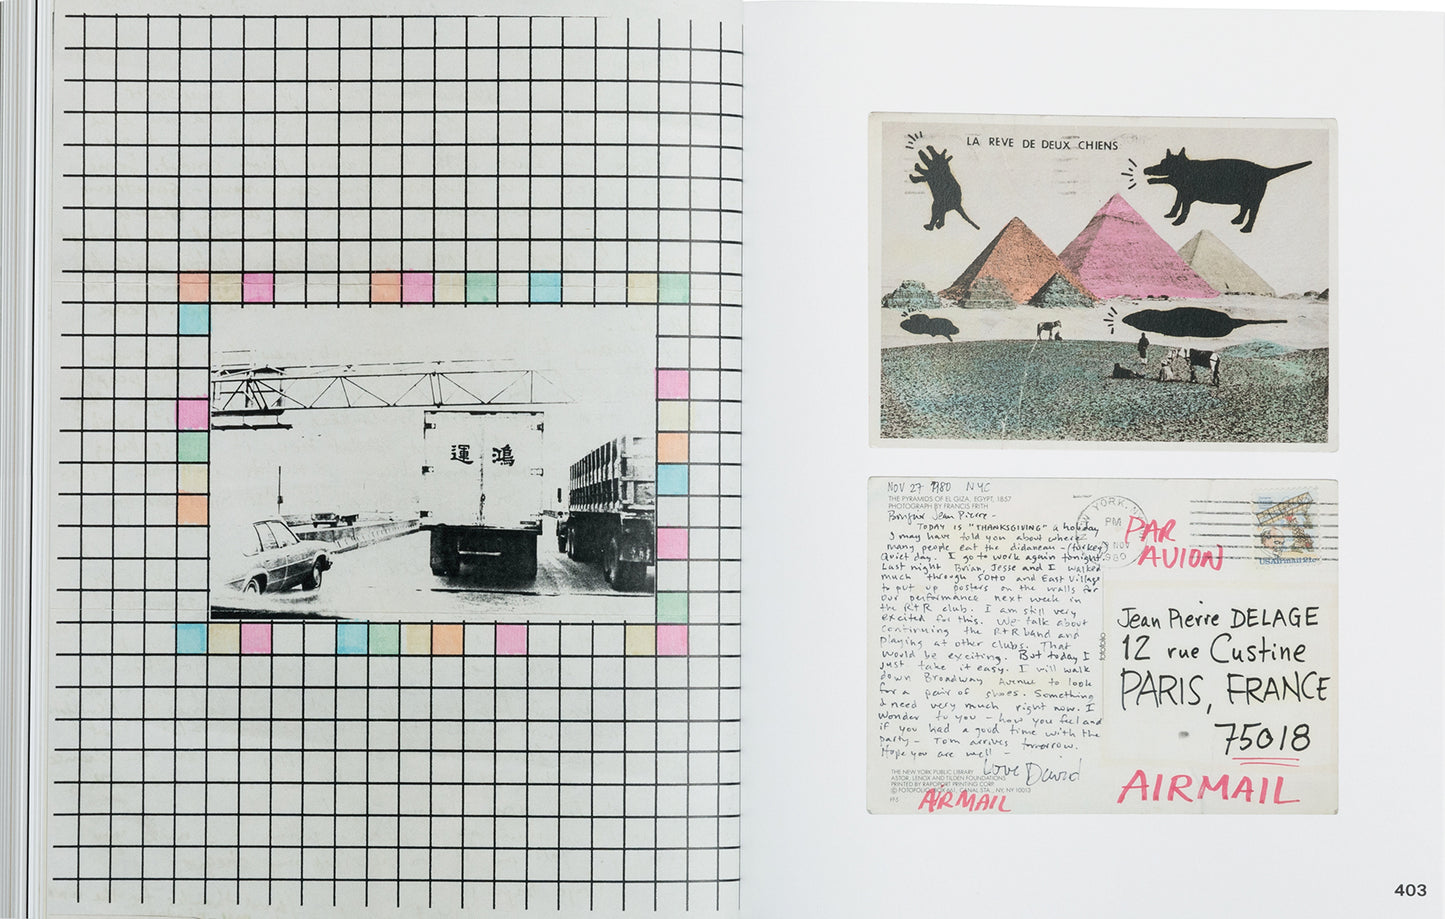 運 鴻
LA REVE DE DEUX CHIENS
NOV 27 1980 NYC
THE PYRAMIDS OF EL GIZA, EGYPT, 1857
PHOTOGRAPH BY FRANCIS FRITH
Bonjour Jean Pierre -
TODAY IS "THANKSGIVING" a holiday
I may have told you about where
many people eat the didaneau - (turkey)
Quiet day. I go to work again tonight.
Last night Brian, Jesse and I walked
much through SOHO and East Village
to put up posters on the walls for
our performance next week in
the R+R club. I am still very
excited for this. We talk about
continuing the R+R band and
playing at other clubs. That
would be exciting. But today I
just take it easy. I will walk
down Broadway Avenue to look
for a pair of shoes. Something
I need very much right now. I
wonder to you - how you feel and
if you had a good time with the
party - Tom arrives tomorrow.
Hope you are well -
Love David
THE NEW YORK PUBLIC LIBRARY
ASTOR, LENOX AND TILDEN FOUNDATIONS
PRINTED BY RAPOPORT PRINTING CORP.
© FOTOFOLIO, BOX 661, CANAL STA., NY, NY 10013
AIRMAIL
fotofolio
YORK, N
PM
NOV
1980
PAR
AVION
USAirmail
Jean Pierre DELAGE
12 rue Custine
PARIS, FRANCE
75018
AIRMAIL
403